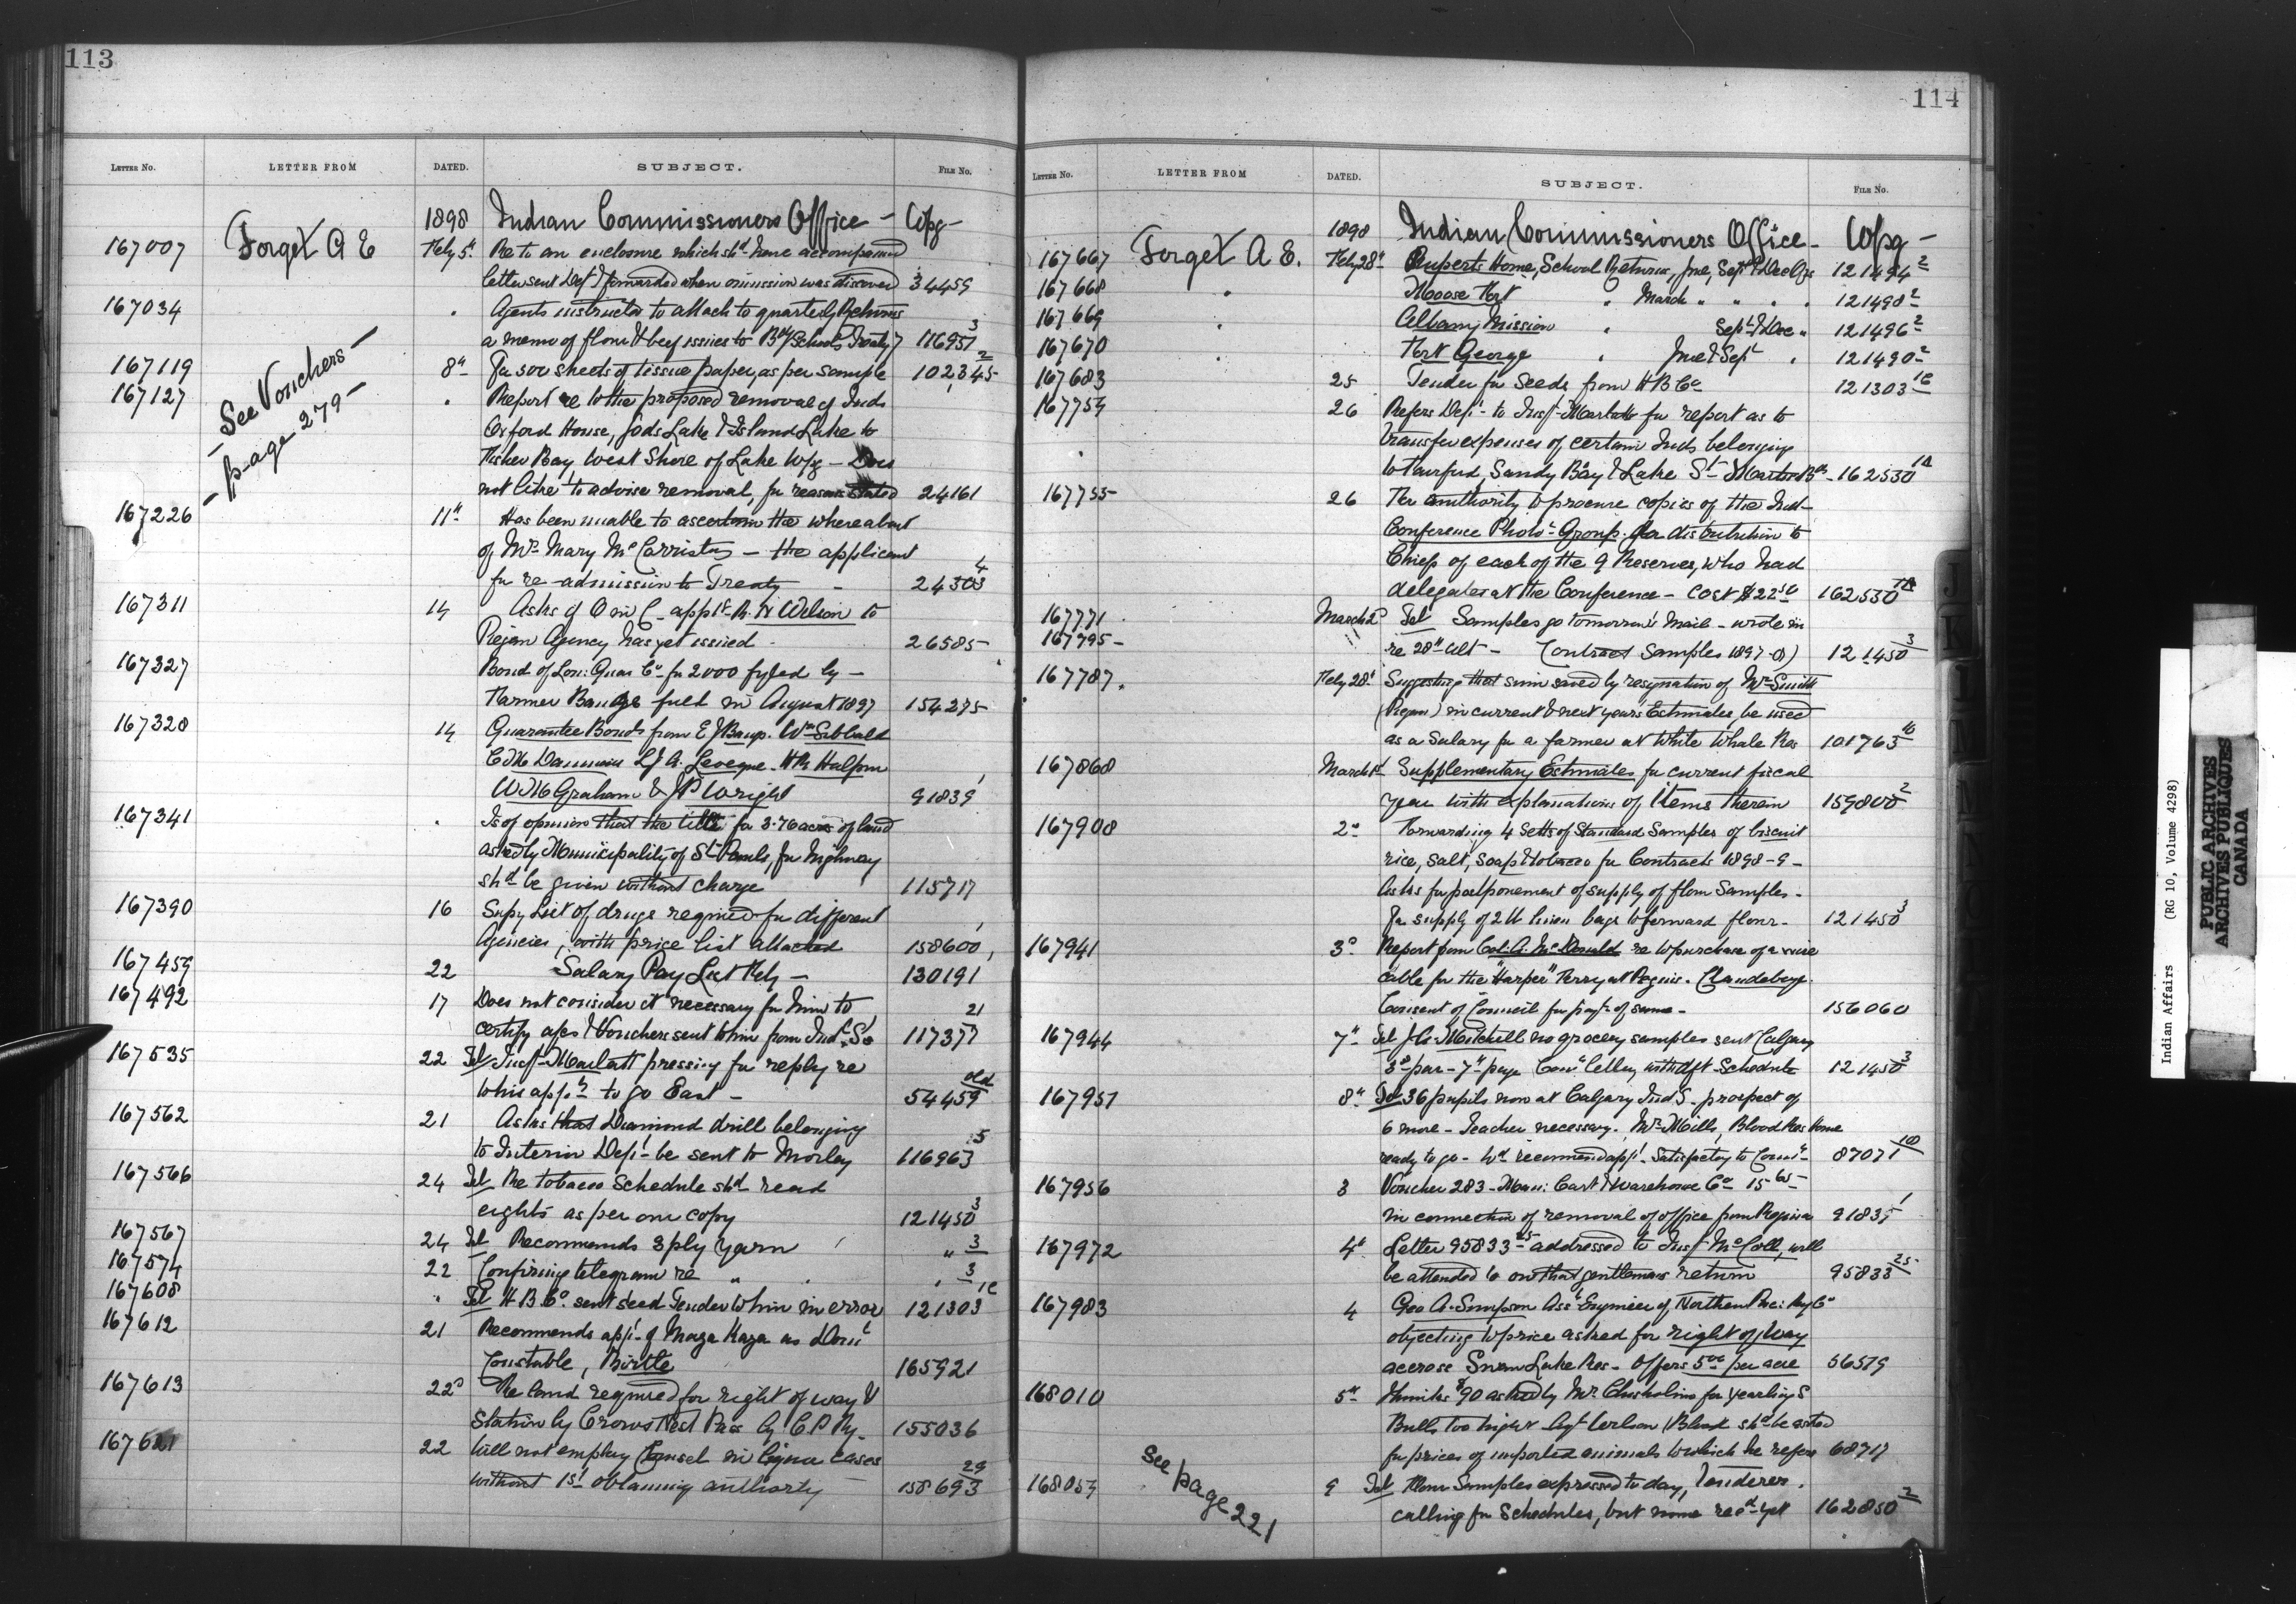 113
LETTER No. LETTER FROM DATED. SUBJECT. FILE No.
1898 Indian Commissioners Office - Wpg -
167007 Forget A E Feby 5th Re to an enclosure which shd have accompanied
letter sent Dept & forwarded when omission was discovered 34459
167034 " Agents instructed to attach to quarterly Returns
a memo of flour & beef issues to Bdg Schools Treaty 7 116957 3
- See Vouchers -
- page 279 -
167119 8th For 500 sheets of tissue paper, as per sample 102345 2
167127 " Report re to the proposed removal of Inds
Oxford House, Gods Lake & Island Lake to
Fisher Bay West Shore of Lake Wpg - Does
not like to advise removal, for reasons stated 24161
167226 11th Has been unable to ascertain the whereabout
of Mrs Mary McCorrister - the applicant
for re-admission to Treaty - 24303 4
167311 14 Asks if O in C appt R. N Wilson to
Piegan Agency has yet issued 26585
167327 Bond of Lon: Guar Co for 2000 fyled by -
Farmer Bangs fuld in August 1897 154275
167328 14 Guarantee Bonds from E J Bangs. Wm Sibbald
L J A. Leveque. H R Halpin
W M Graham & J P Wright 91839 1
167341 " Is of opinion that the title for 3.76 acres of land
asked by Municipality of St Pauls, for highway
shd be given without charge 115717
167390 16 Supy List of drugs required for different
Agencies, with price list attached 158600 1
167459 22 Salary Pay List Feby - 130191
167492 17 Does not consider it necessary for him to
certify a/cs & Vouchers sent to him from Indl S. 117377 21
167535 22 Tel Insp. Marlatt pressing for reply re
to his appn to go East - 54459 old
167562 21 Asks that Diamond drill belonging
to Interior Dept be sent to Morley 116963 5
167566 24 Tel Re tobacco Schedule shd read
eights as per our copy 121450 3
167567 24 Tel Recommends 3 ply yarn " 3
167574 22 Confirming telegram re " " 3
167608 " Tel H B Co. sent seed Tender to him in error 121303 1c
167612 21 Recommends appt of Maza Kaza as Domn
Constable, Birtle 165921
167613 22d Re land required for right of way &
Station by Crows Nest Pass by C P Ry. 155036
22 Will not employ Counsel in liquor cases
without 1st obtaining authority 158693 29
114
LETTER No. LETTER FROM DATED. SUBJECT. FILE No.
1898 Indian Commissioners Office - Wpg -
167667 Forget A E. Feby 28th Ruperts Home, School Returns, June, Sept & Dec Qrs 121494 2
167668 " Moose Fort " March " " " " 121498 2
167669 " Albany Mission " Sept & Dec " 121496 2
167670 " Fort George " June & Sept " 121490 2
167683 25 Tender for Seeds from H B Co 121303 1c
167754 26 Refers Dept to Insp. Marlatt for report as to
transfer expenses of certain Inds belonging
to Fairford, Sandy Bay & Lake St Martin Bds 162530 1A
167755 26 For authority to procure copies of the Ind
Conference Photo- Group for distribution to
Chiefs of each of the 9 Reserves, who had
delegates at the Conference - Cost $22.50 162530 1A
167771 March 2d Tel Samples go tomorrow's mail - wrote in
167795 " re 28th ult - (Contract Samples 1897-8) 121450 3
167787 Feby 28th Suggesting that sum saved by resignation of Mr Smith
(Piegan) in current & next years Estimates, be used
as a Salary for a farmer at White Whale Res 101763 10
167868 March 1st Supplementary Estimates for current fiscal
year with explanations of Items therein 159800 2
167908 2d Forwarding 4 Setts of Standard Samples of biscuit
rice, salt, soap & tobacco for Contracts 1898-9 -
Asks for postponement of supply of flour Samples -
for supply of 2 lb linen bags to forward flour - 121450 3
167941 3d Report from Col. A. McDonald re to purchase of a wire
cable for the "Harper" Ferry at Peguis. Clandeboye
Consent of Council for payt of same - 156060
167944 7th Tel J. A. Mitchell no grocery samples sent Calgary
3d par - 7th page Comr letter with dft Schedule 121450 3
167951 8th Tel 36 pupils now at Calgary Ind S. prospect of
6 more - Teacher necessary. Mr Mills, Blood Res Home
ready to go - Wd recommend appt. Satisfactory to Comr 87071 10
167956 3 Voucher 283 - Man: Cart & Warehouse Co 15.65
in connection of removal of office from Regina 91835 1
167972 4th Letter 95833 25 addressed to Insp McColl, will
be attended to on that gentlemans return 95833 25
167983 4 Geo A. Simpson Asst Engineer of Northern Pac: Ry Co
objecting to price asked for right of way
accross Swan Lake Res - Offers 5.00 per acre 56579
168010 5th Thinks $90 asked by Mr Chisholm for yearling S
Bulls too high & Agt Wilson (Blood) shd be asked
for prices of imported animals to which he refers 68717
168054 9 Tel Flour Samples expressed to day, tenderers
calling for Schedules, but none recd yet 162850 2
See page 221
Indian Affairs (RG 10, Volume 4298)
PUBLIC ARCHIVES
ARCHIVES PUBLIQUES
CANADA